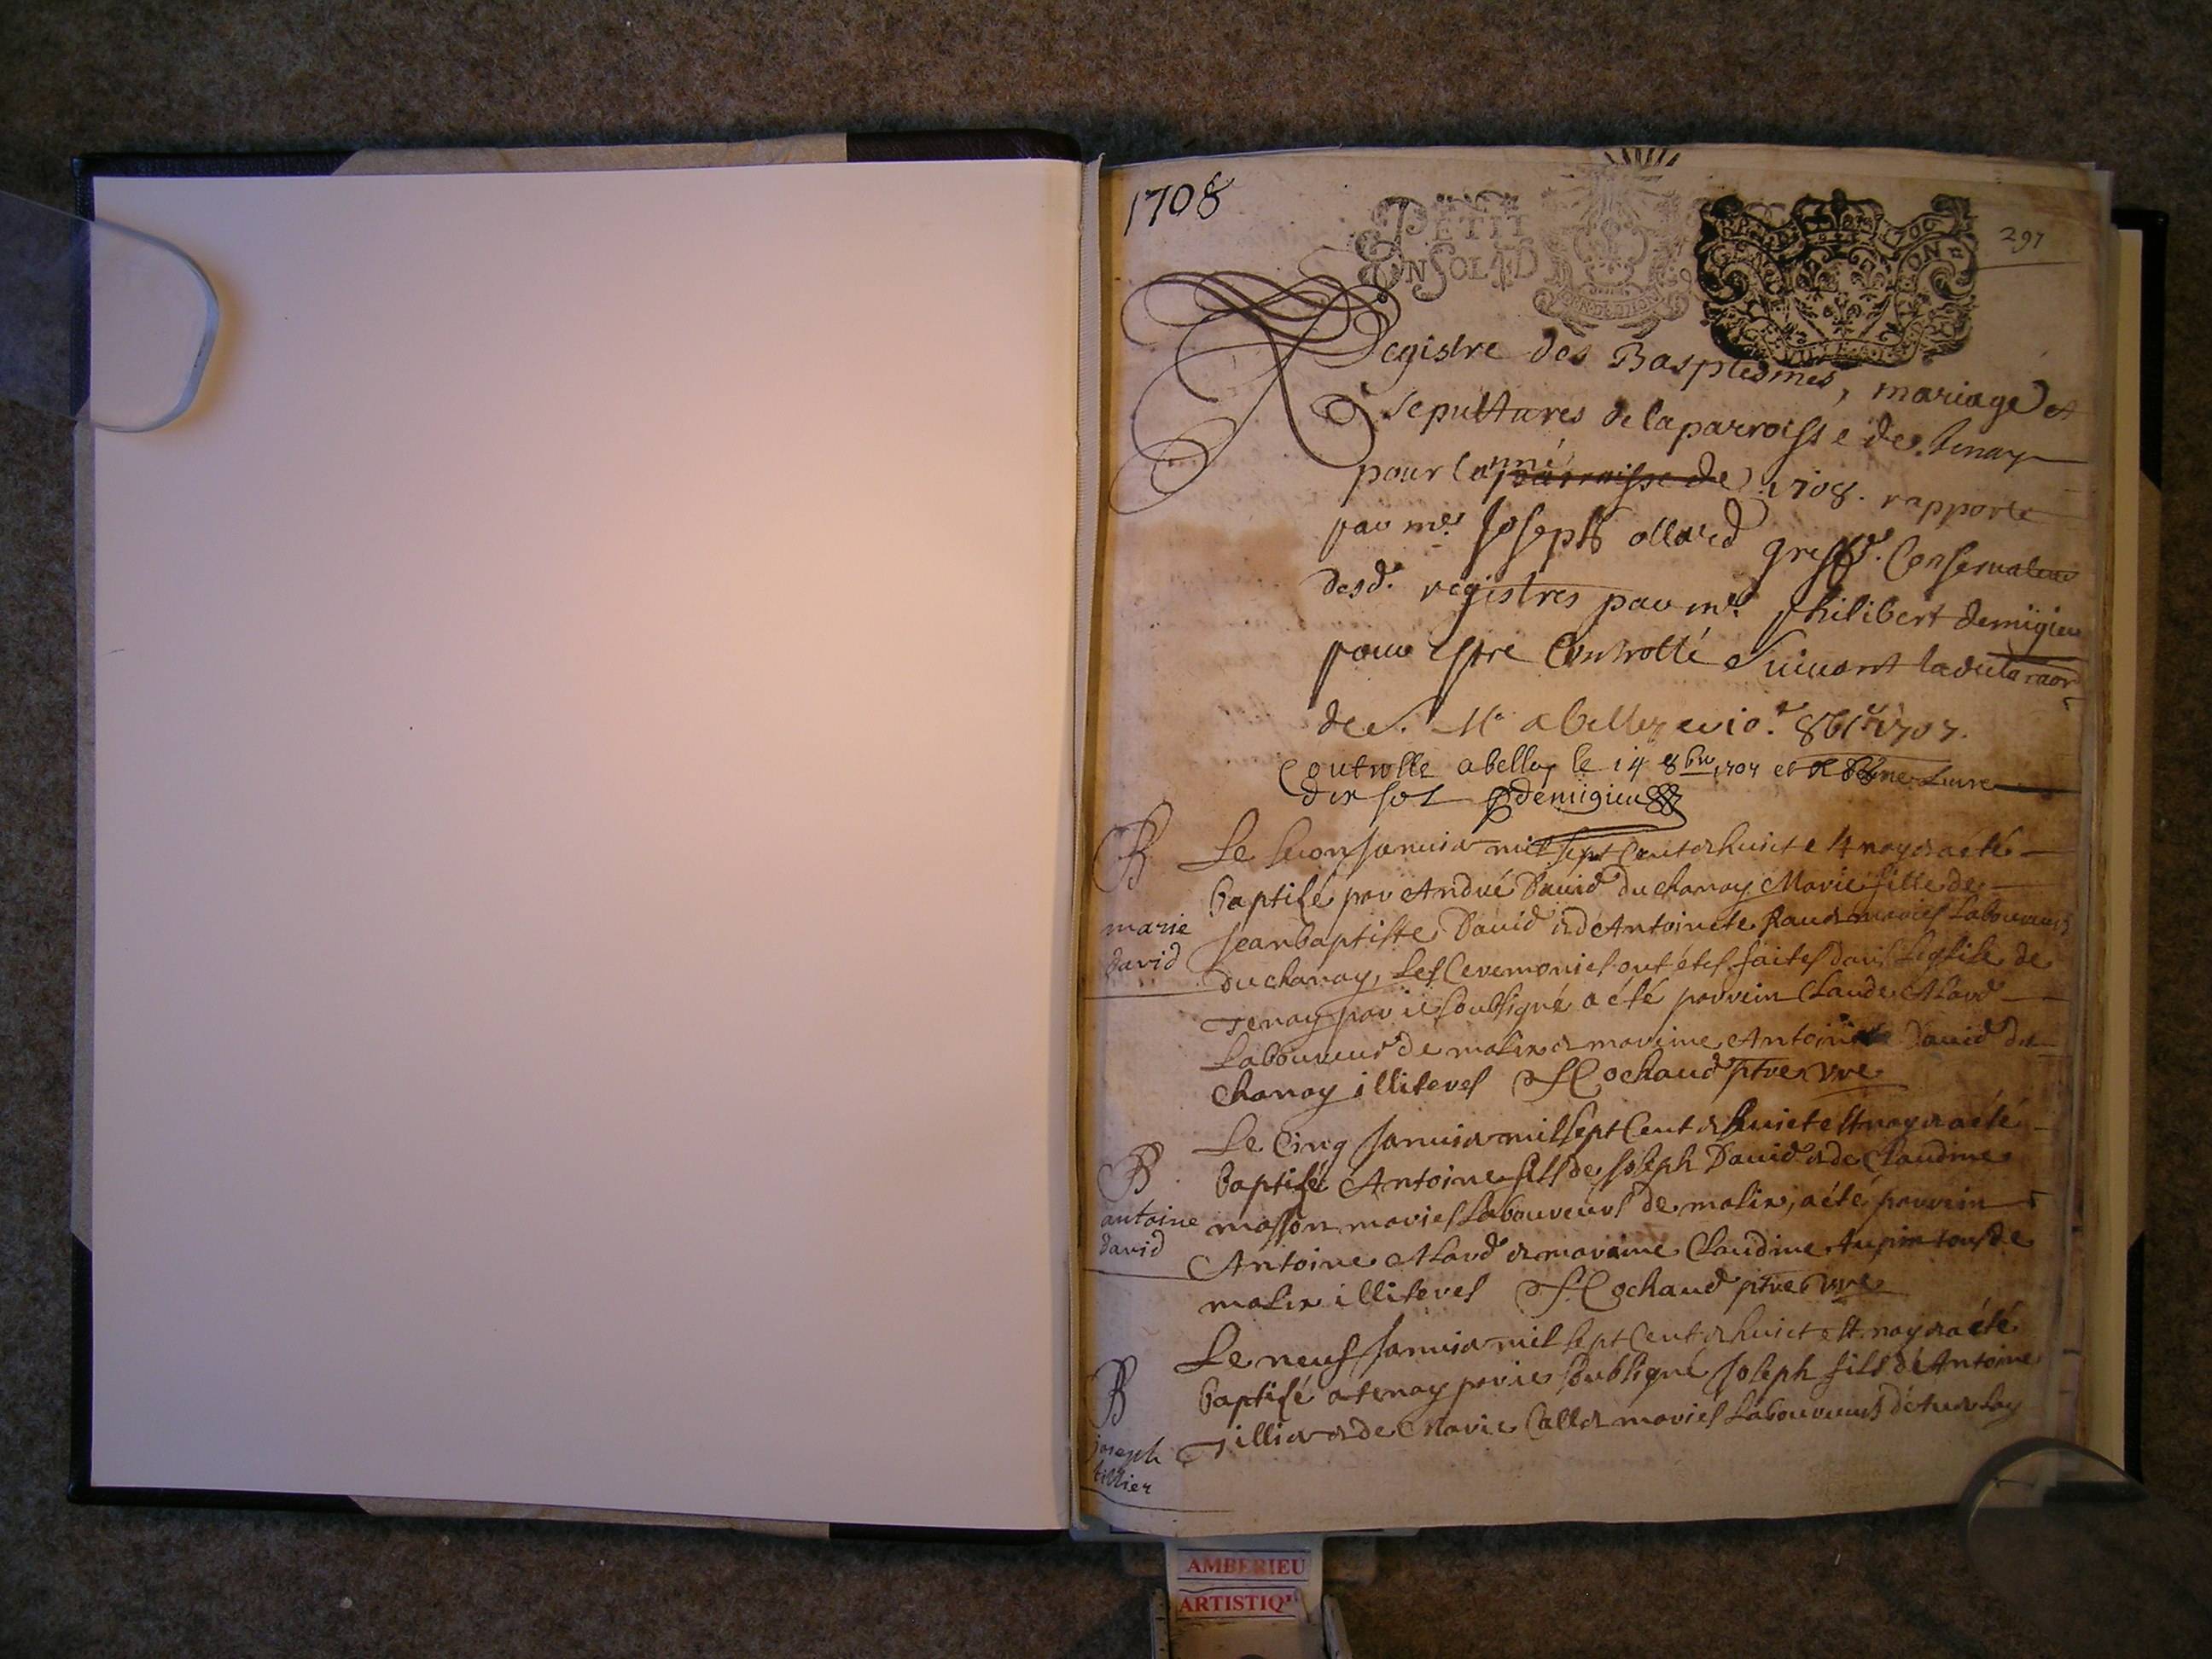 1708
PETIT
EN SOL D
297
Registre des Baptesmes, mariage et
sepultures de la parroisse de tenay
pour lanné parroisse de 1708. rapporté
par me. Joseph allard greff. Conservateur
desd. registres par mr. philibert demigieu
pour estre Controllé suivant la declaraon
de s. M. a belley ce 10.e 8bre 1707.
Controlle a belley le 14 8bre 1707 et
dix sols demigieu
B
marie
david
Le second Janvier mil sept cent et huict est nay et a été
baptisé par André David du chanay Marie fille de
Jean baptiste David et d'Antoinete mariés Laboureurs
du chanay, Les Ceremonies ont étés faites dans Leglise de
Tenay par ie soubsigné a été parrein Claude Alard
Laboureur de malix et mareine Antoinete David du
chanay illiteres Cochaud ptre vre
B
antoine
david
Le Cinq Janvier mil sept Cent et huict est nay et a été
baptisé Antoine fils de Joseph David et de Claudine
masson mariés Laboureurs de malix, a été parrein
Antoine Alard et mareine Claudine tous de
malix illiteres Cochaud ptre vre
B
joseph
tillier
Le neuf Janvier mil sept Cent et huict est nay et a été
baptisé a tenay par ie soubsigné Joseph fils d'Antoine
Tillier et de Marie mariés Laboureurs de
AMBERIEU
ARTISTIQ